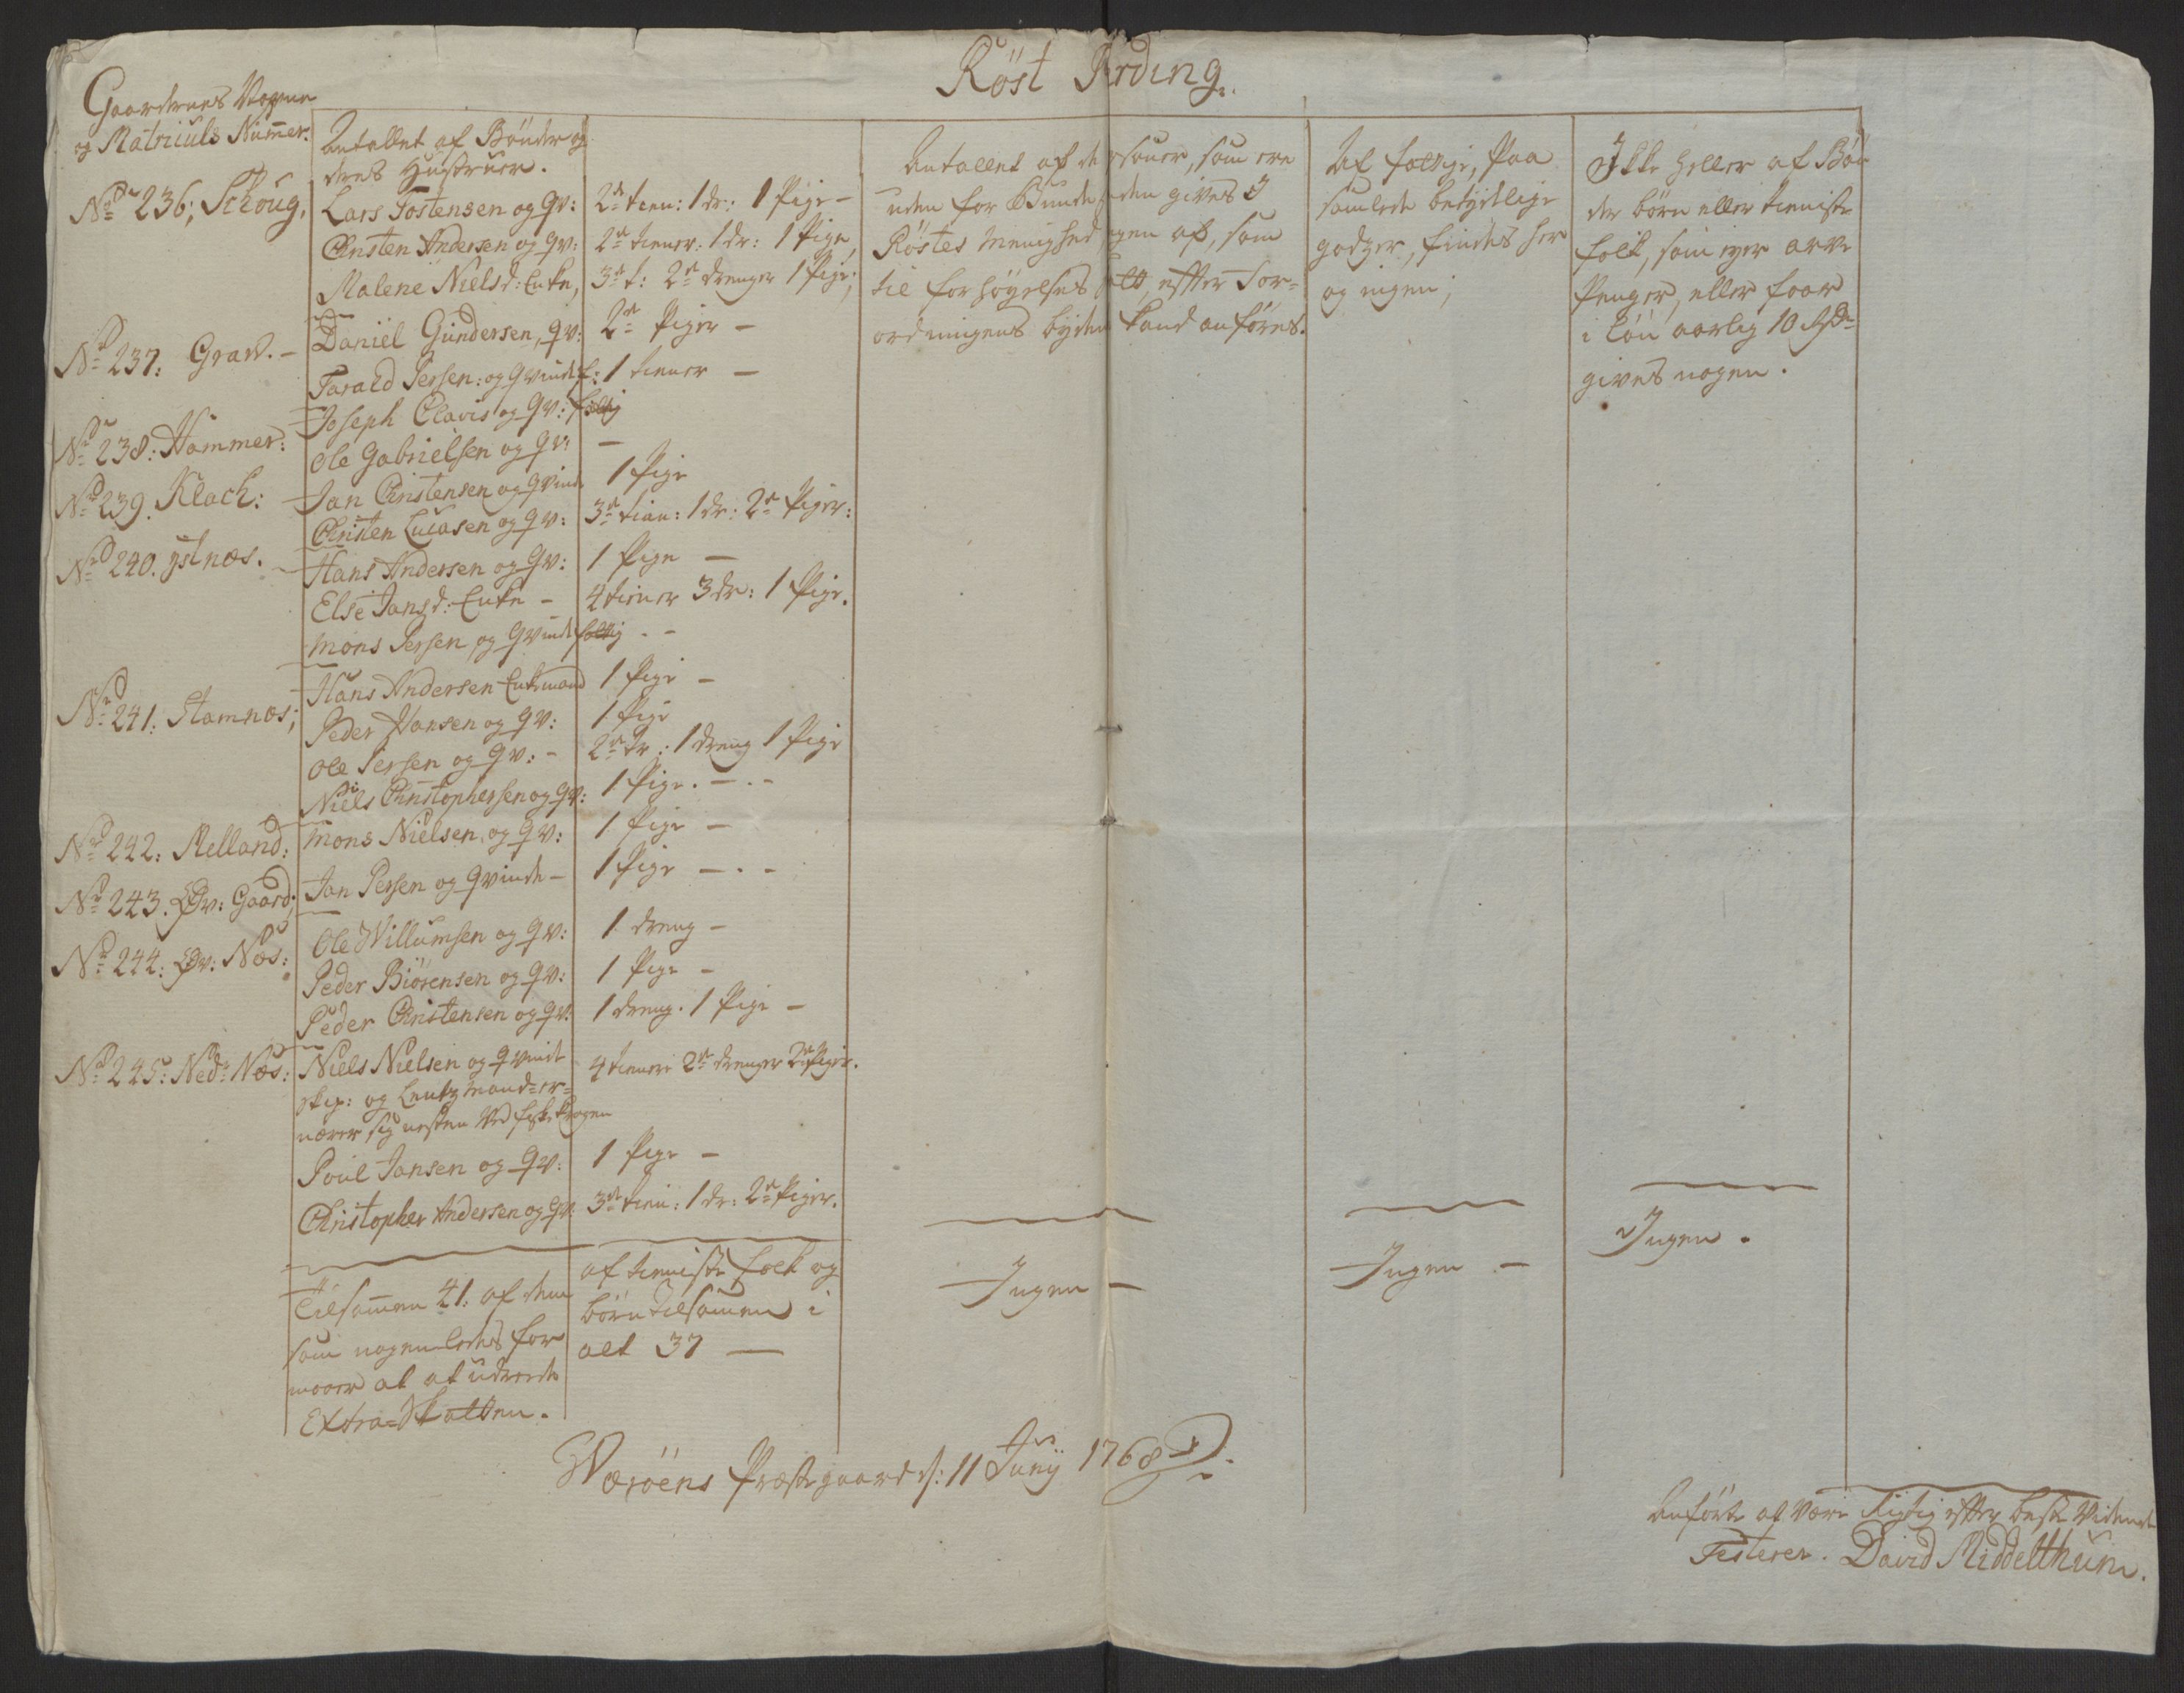 Röst Fierding.
Gaardernes Navne
og Matriculs Nummer.
Antallet af Bönder og
deres Hustruer.
Antallet af Personer, som ere
uden for Bonde standen gives I
Röstes Menighed ingen af, som
til forhöyelses Skatt, efter For=
ordningens bydende kand anföres.
Af folkye, paa
samlede betydelige
godzer, findes her
og ingen;
Ikke heller af Bön
der börn eller tieniste
folk, som eyer arve
Penger, eller faar
i Lön aarlig 10 Rdr
gives nogen.
No 236; Schoug,
Lars Tostensen og qv: 2de tien: 1 dr: 1 Pige -
Christen Andersen og qv: 2de tiener: 1 dr: 1 Pige,
Malene Nielsd: Enke, 3de t: 2de drenger 1 Pige;
No 237: Grav. -
Daniel Gundersen, qv: 2de Piger -
Tarald Persen: og Qvinde f: 1 tiener -
No 238: Hammer:
Joseph Clavis og qv: fattig
Ole Gabrielsen og qv: -
No 239. Klack:
Jan Christensen og Qvinde 1 Pige
Christen Lucasen og qv: 3de tien: 1 dr: 2de Piger:
No 240. ystnæs. -
Hans Andersen og qv: 1 Pige -
Else Jansd: Enke - 4 tiener 3 dr: 1 Pige.
Mons Persen og Qvinde fattig . -
No 241: Stamnæs;
Hans Andersen Enkemand 1 Pige -
Peder Hansen og qv: 1 Pige
Ole Persen og qv: - 2de tr: 1 dreng 1 Pige
Niels Christophersen og qv: 1 Pige. - . -
No 242: Melland:
Mons Nielsen, og qv: 1 Pige -
No 243. Öv: Gaard;
Jan Persen og Qvinde - 1 Pige - . -
No 244: Öv: Næs:
Ole Willumsen og qv: 1 dreng -
Peder Biörensen og qv: 1 Pige -
Peder Christensen og qv: 1 dreng. 1 Pige -
No 245: Ned: Næs:
Niels Nielsen og Qvinde 4 tienere 2de drenger 2de Piger.
skip: og Lentzmand=er=
nærer sig nesten ved fiskekrogen
Poul Jansen og qv: 1 Pige -
Christopher Andersen og qv: 3de tien: 1 dr: 2de Piger.
Tilsammen 41: af dem
som nogenledes for
maaer at at udrede
Extra=Skatten.
af tieniste folk og
börn tilsammen i
alt 37 -
Ingen -
Ingen -
Ingen.
Wæröens Præstegaard d: 11 Junij 1768.
Anförte at være Rigtig efter beste Vidende
Testerer. David Middelthun.